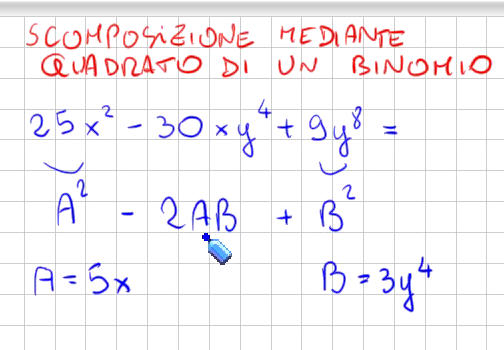 SCOMPOSIZIONE MEDIANTE
QUADRATO DI UN BINOMIO
25x² - 30xy⁴ + 9y⁸ =
A² - 2AB + B²
A = 5x B = 3y⁴